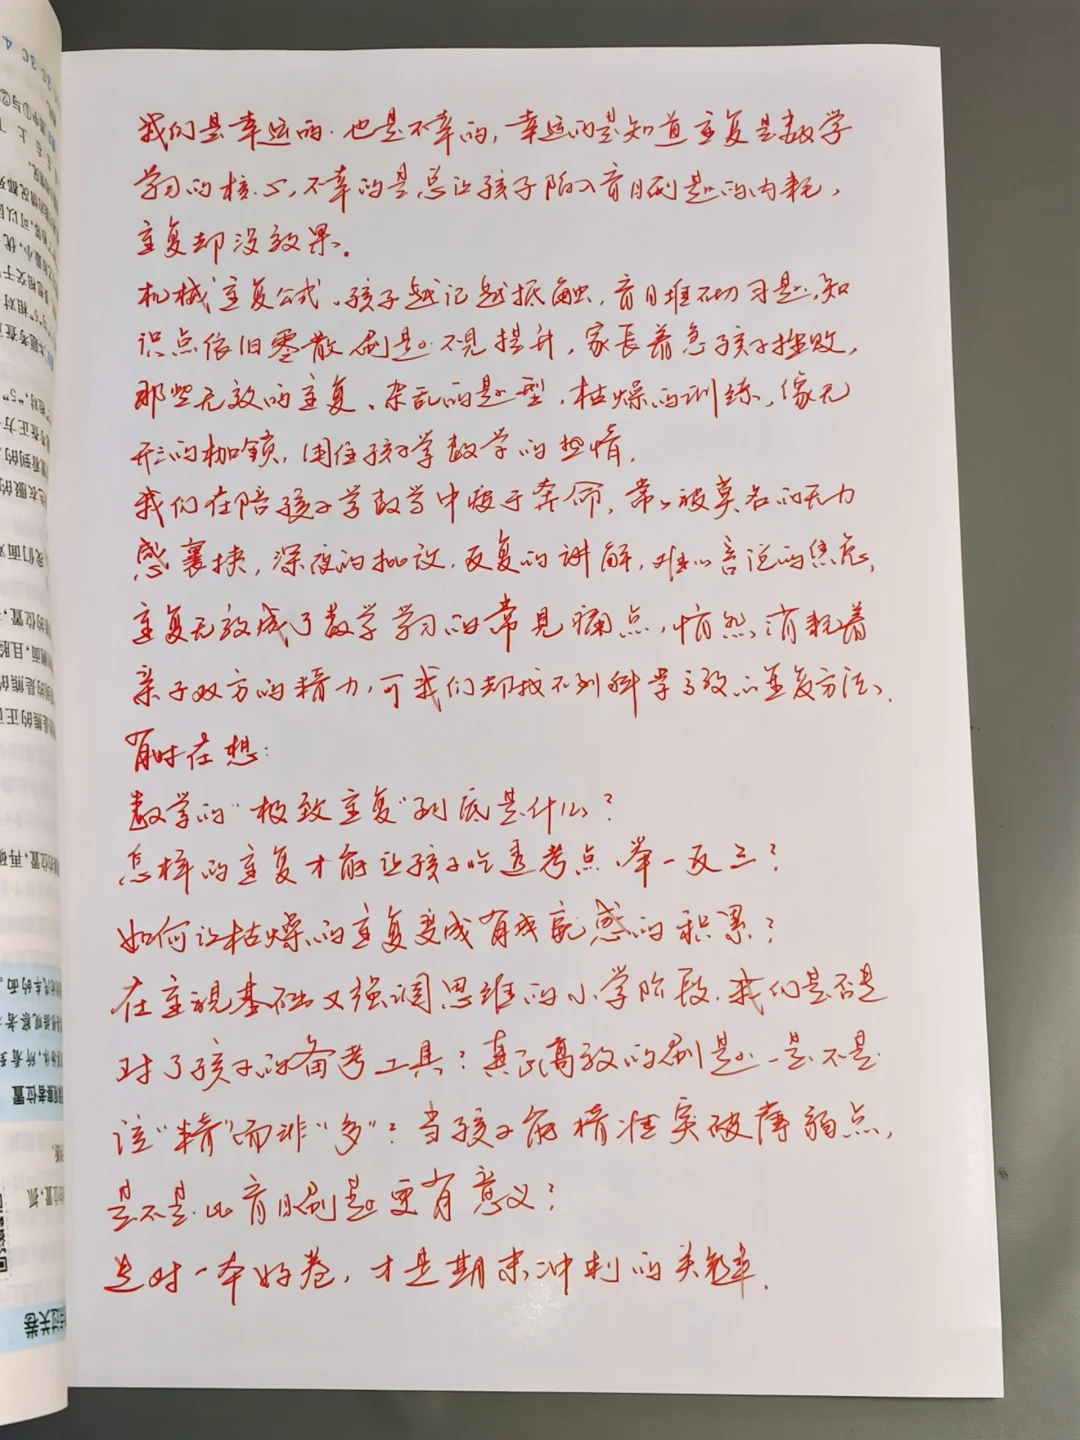 我们是幸运的.也是不幸的,幸运的是知道重复是数学
学习的核心,不幸的是总让孩子陷入盲目刷题的内耗,
重复却没效果.
机械重复公式、孩子越记越抵触,盲目堆砌习题,知
识点依旧零散 刷题不见提升,家长着急孩子挫败,
那些无效的重复、杂乱的题型,枯燥的训练,像无
形的枷锁,困住孩子学数学的热情.
我们在陪孩子学数学中疲于奔命,常常被莫名的无力
感裹挟,深夜的批改.反复的讲解,难以言说的焦虑,
重复无效成了数学学习的常见痛点,悄然消耗着
亲子双方的精力,可我们却找不到科学高效的重复方法、
有时在想:
数学的“极致重复”到底是什么?
怎样的重复才能让孩子吃透考点.举一反三?
如何让枯燥的重复变成有成就感的积累?
在重视基础又强调思维的小学阶段.我们是否选
对了孩子的备考工具?真正高效的刷题.是不是
该“精”而非“多”?当孩子能精准突破薄弱点,
是不是比盲目刷题更有意义?
选对一本好卷,才是期末冲刺的关键.
置,抓
察者位置
过关卷